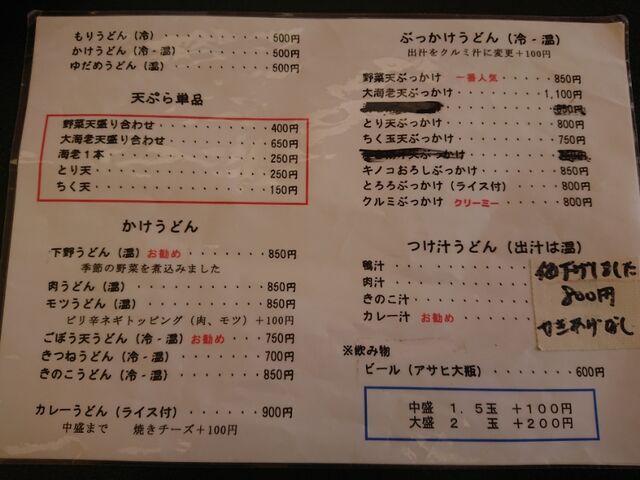 もりうどん（冷）・・・・・・・・500円
かけうどん（冷-温）・・・・・・・500円
ゆだめうどん（温）・・・・・・・・500円
天ぷら単品
野菜天盛り合わせ・・・・・・・・・400円
大海老天盛り合わせ・・・・・・・・650円
海老1本・・・・・・・・・・・・・250円
とり天・・・・・・・・・・・・・・250円
ちく天・・・・・・・・・・・・・・150円
かけうどん
下野うどん（温）お勧め・・・・・・850円
季節の野菜を煮込みました
肉うどん（温）・・・・・・・・・・850円
モツうどん（温）・・・・・・・・・850円
ピリ辛ネギトッピング（肉、モツ）＋100円
ごぼう天うどん（冷-温）お勧め・・・750円
きつねうどん（冷-温）・・・・・・・700円
きのこうどん（冷-温）・・・・・・・850円
カレーうどん（ライス付）・・・・・・900円
中盛まで　焼きチーズ＋100円
ぶっかけうどん（冷-温）
出汁をクルミ汁に変更＋100円
野菜天ぶっかけ　一番人気・・・・・850円
大海老天ぶっかけ・・・・・・・・1,100円
とり天ぶっかけ・・・・・・・・・・800円
ちく玉天ぶっかけ・・・・・・・・・750円
キノコおろしぶっかけ・・・・・・・850円
とろろぶっかけ（ライス付）・・・・800円
クルミぶっかけ　クリーミー・・・・800円
つけ汁うどん（出汁は温）
鴨汁・・・・・・・・・
肉汁・・・・・・・・・
きのこ汁・・・・・・・
カレー汁　お勧め・・・・
値下げしました
800円
※飲み物
ビール（アサヒ大瓶）・・・・・・・600円
中盛　1．5玉　＋100円
大盛　2　　玉　＋200円